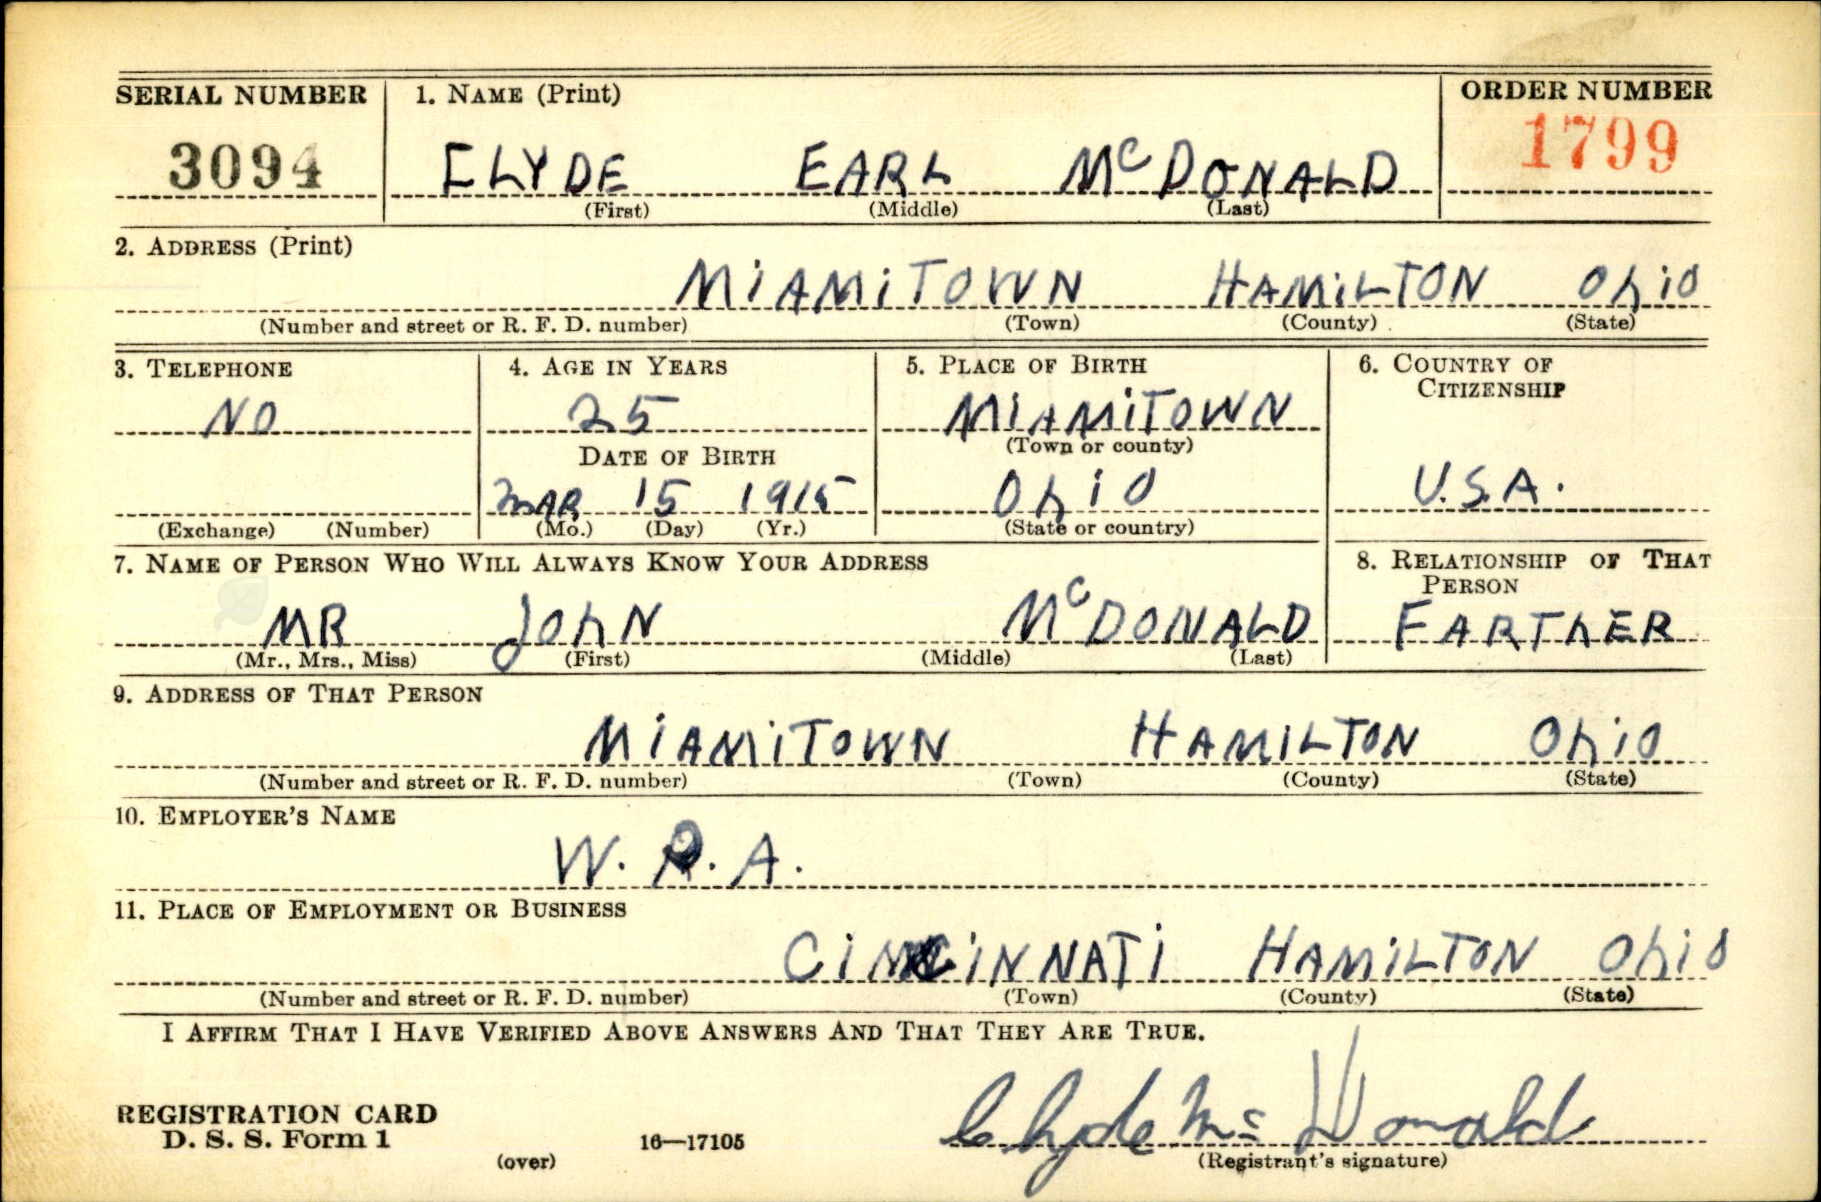 SERIAL NUMBER 1. NAME (Print) ORDER NUMBER
3094 CLYDE EARL McDONALD 1799
(First) (Middle) (Last)
2. ADDRESS (Print)
MiAMiTOWN HAMiLTON OhiO
(Number and street or R. F. D. number) (Town) (County) (State)
3. TELEPHONE 4. AGE IN YEARS 5. PLACE OF BIRTH 6. COUNTRY OF CITIZENSHIP
NO 25 MIAMiTOWN
(Town or county)
DATE OF BIRTH
MAR 15 1915 OhiO U.S.A.
(Exchange) (Number) (Mo.) (Day) (Yr.) (State or country)
7. NAME OF PERSON WHO WILL ALWAYS KNOW YOUR ADDRESS 8. RELATIONSHIP OF THAT PERSON
MR JOhN McDONALD FARThER
(Mr., Mrs., Miss) (First) (Middle) (Last)
9. ADDRESS OF THAT PERSON
MiAMiTOWN HAMILTON OhiO
(Number and street or R. F. D. number) (Town) (County) (State)
10. EMPLOYER'S NAME
W. P. A.
11. PLACE OF EMPLOYMENT OR BUSINESS
CiNCiNNATi HAMiLTON OhiO
(Number and street or R. F. D. number) (Town) (County) (State)
I AFFIRM THAT I HAVE VERIFIED ABOVE ANSWERS AND THAT THEY ARE TRUE.
Clyde Mc Donald
REGISTRATION CARD
D. S. S. Form 1 16—17105
(over) (Registrant's signature)